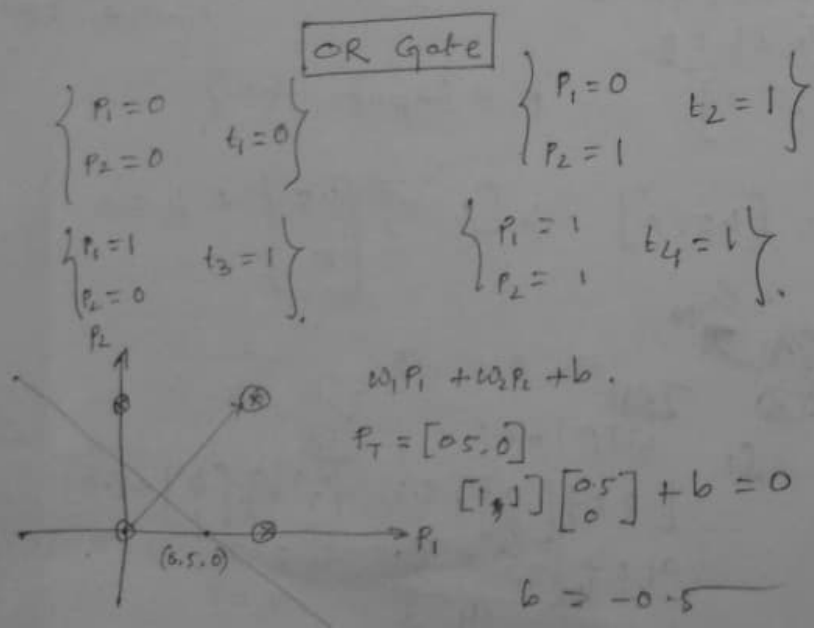 OR Gate
{ P₁ = 0
P₂ = 0 t₁ = 0 }
{ P₁ = 0
P₂ = 1 t₂ = 1 }
{ P₁ = 1
P₂ = 0 t₃ = 1 }.
{ P₁ = 1
P₂ = 1 t₄ = 1 }.
P₂
(0.5,0)
P₁
w₁P₁ + w₂P₂ + b.
P_T = [0.5, 0]
[1, 1] [0.5
0] + b = 0
b = -0.5